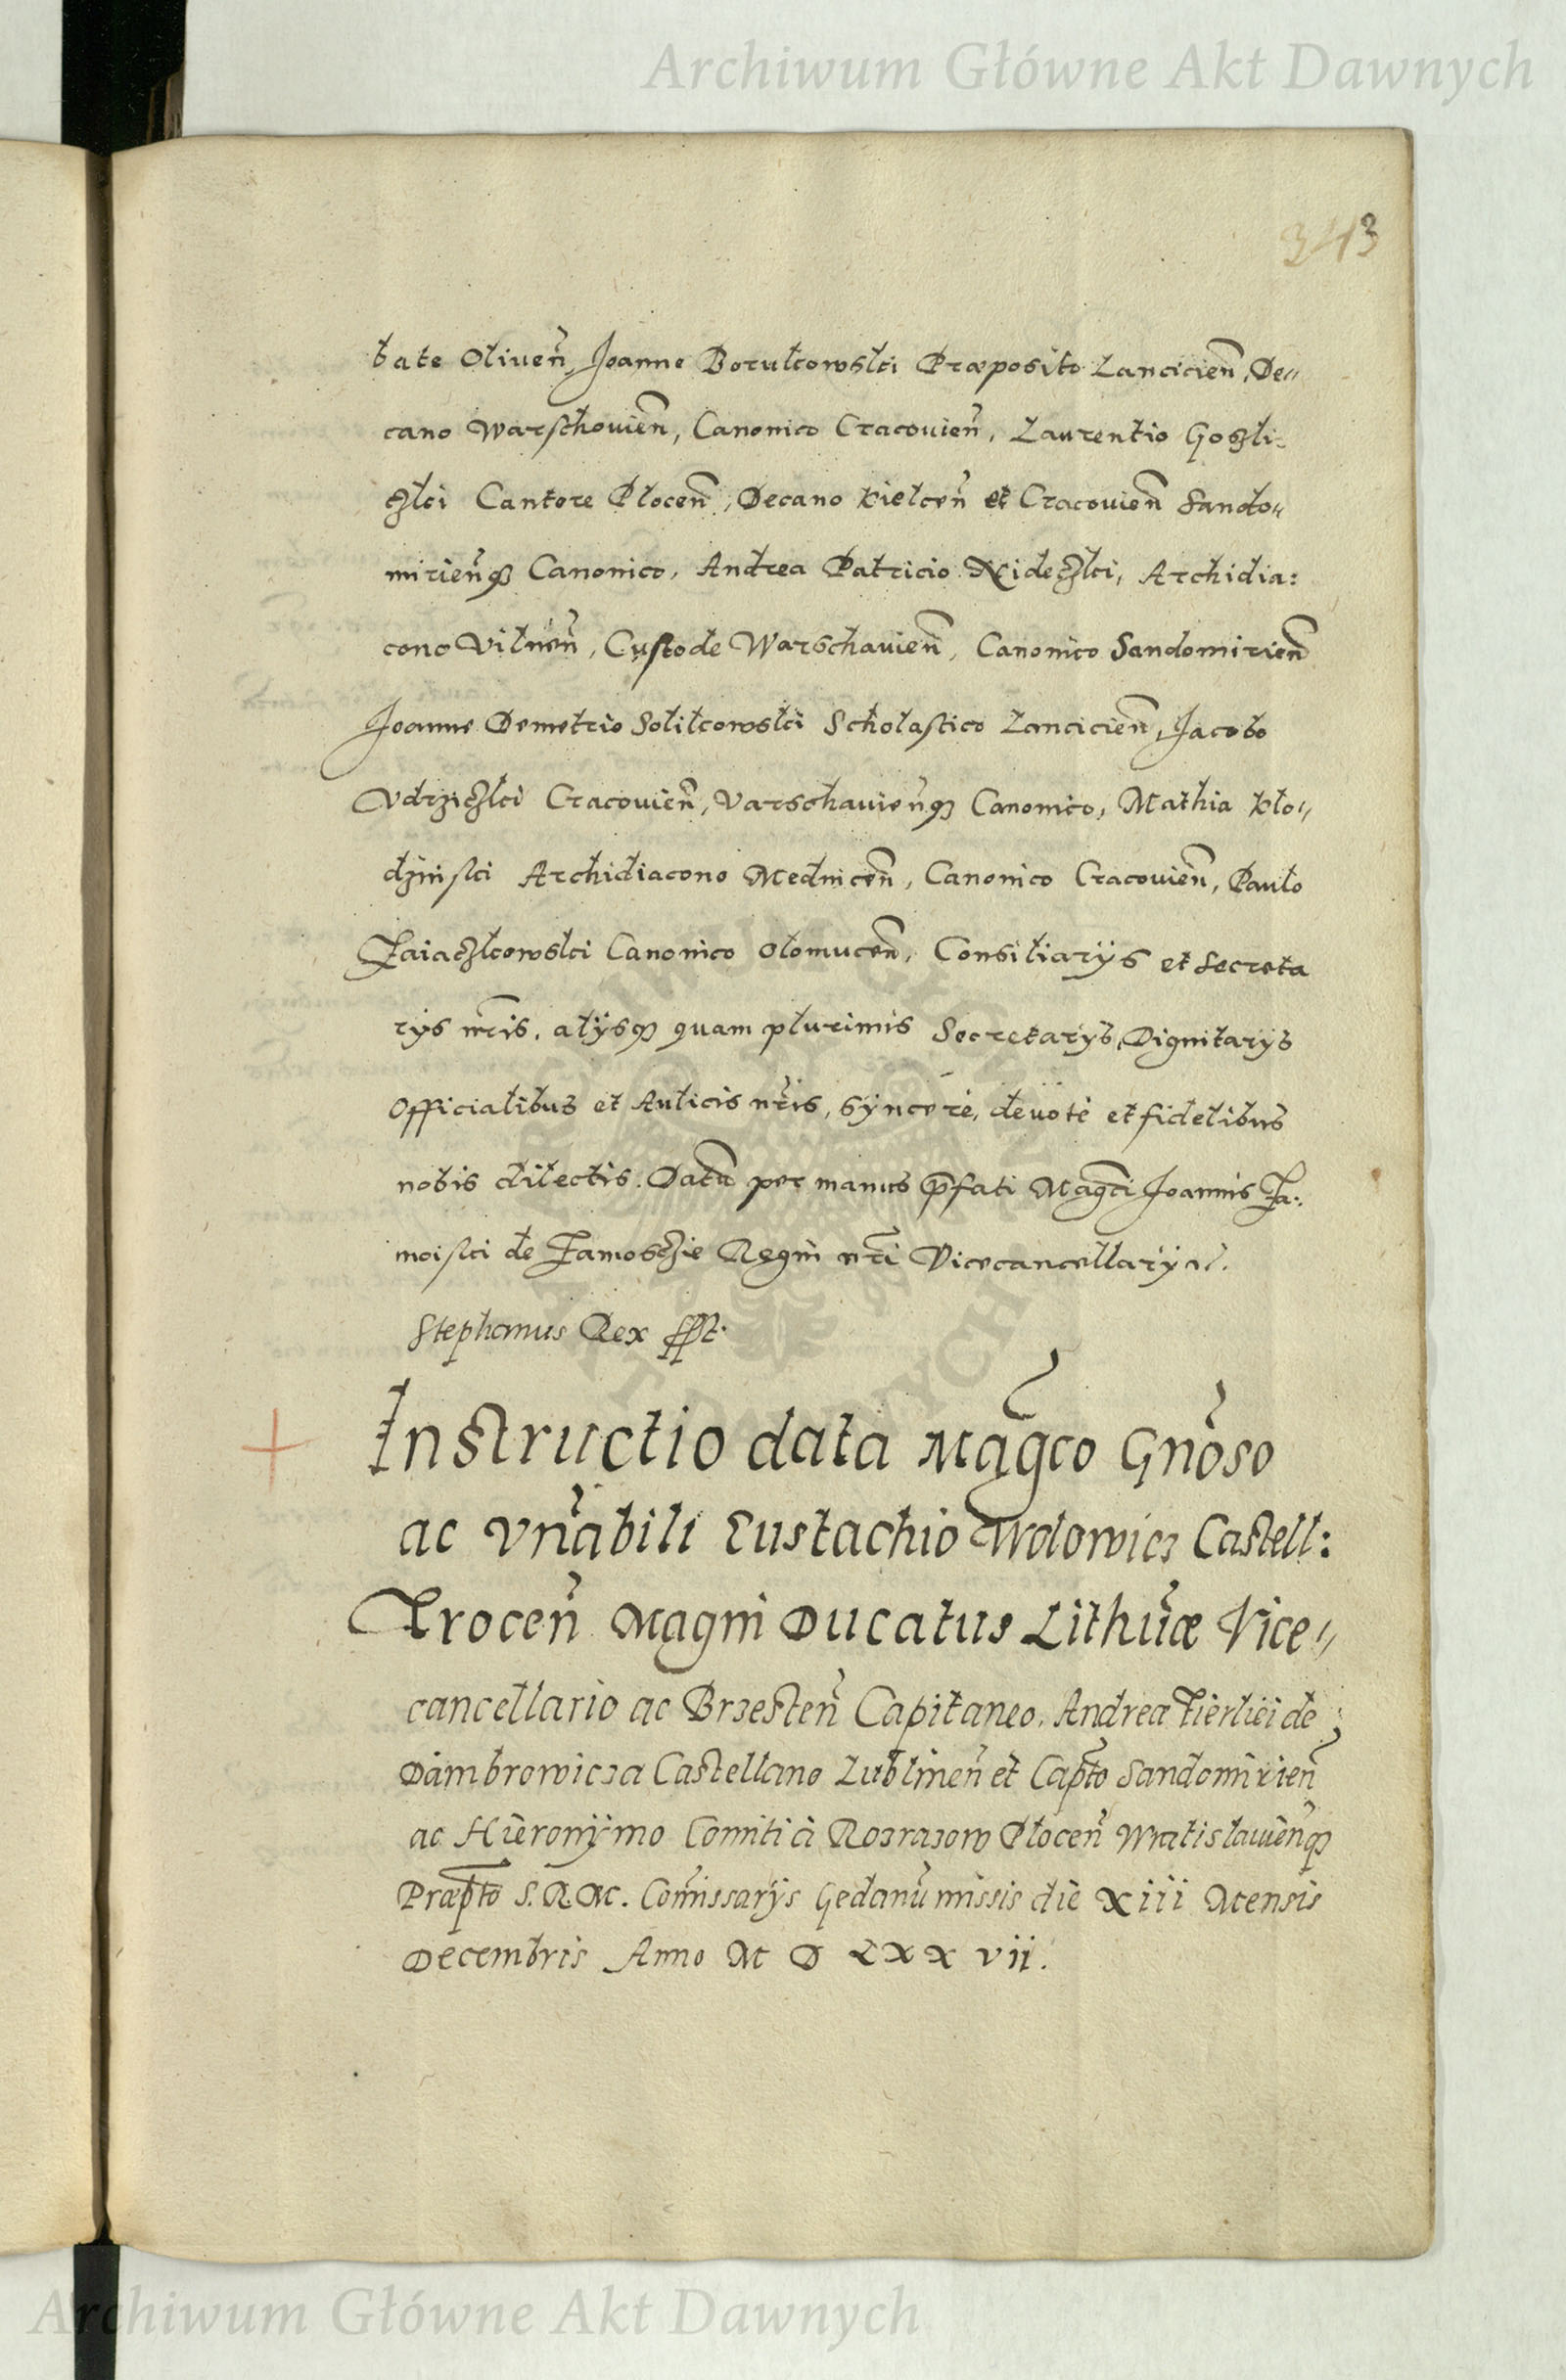 Archiwum Główne Akt Dawnych
343
bate Oliveñ, Joanne Borukowski Præposito Lancicieñ, De„
cano Warschovieñ, Canonico Cracovieñ, Laurentio Gośli-
ćzki Cantore Ploceñ, Decano Kielceñ et Cracovieñ Sando„
mirieñq₃ Canonico, Andrea Patricio Nideczki, Archidia:
cono Vilneñ, Custode Warschavieñ, Canonico Sandomirieñ
Joanne Demetrio Solikowski Scholastico Lancicieñ, Jacobo
Vdrziczki Cracovieñ, Varschavieñq₃ Canonico, Mathia Klo„
dzinski Archidiacono Medniceñ, Canonico Cracovieñ, Paulo
Zaiaczkowski Canonico Olomuceñ, Consiliarijs et Secreta
rijs nr̃is, alijsq₃ quam plurimis Secretarijs, Dignitarijs
Officialibus et Aulicis nr̃is, syncerè, devotè et fidelibus
nobis dilectis. Datũ per manus p̃fati Magc̃i Joannis Za:
moiski de Zamosczie Regni nr̃i Vicecancellarij
Stephanus Rex
Instructio data Magc̃o Gñoso
ac Vñabili Eustachio Wolowicz Castell:
Troceñ Magni Ducatus Lithũæ Vice„
cancellario ac Brzesteñ Capitaneo, Andrea Fierliei de
Dambrowicza Castellano Lublineñ et Capt̃o Sandomirieñ
ac Hieronÿmo Comiti à Rozrazow Ploceñ Wratislavieñq₃
Præpt̃o S. R. M. Com̃issarijs Gedanũ missis die Xiii Mensis
Decembris Anno M D LXX vii.
Archiwum Główne Akt Dawnych